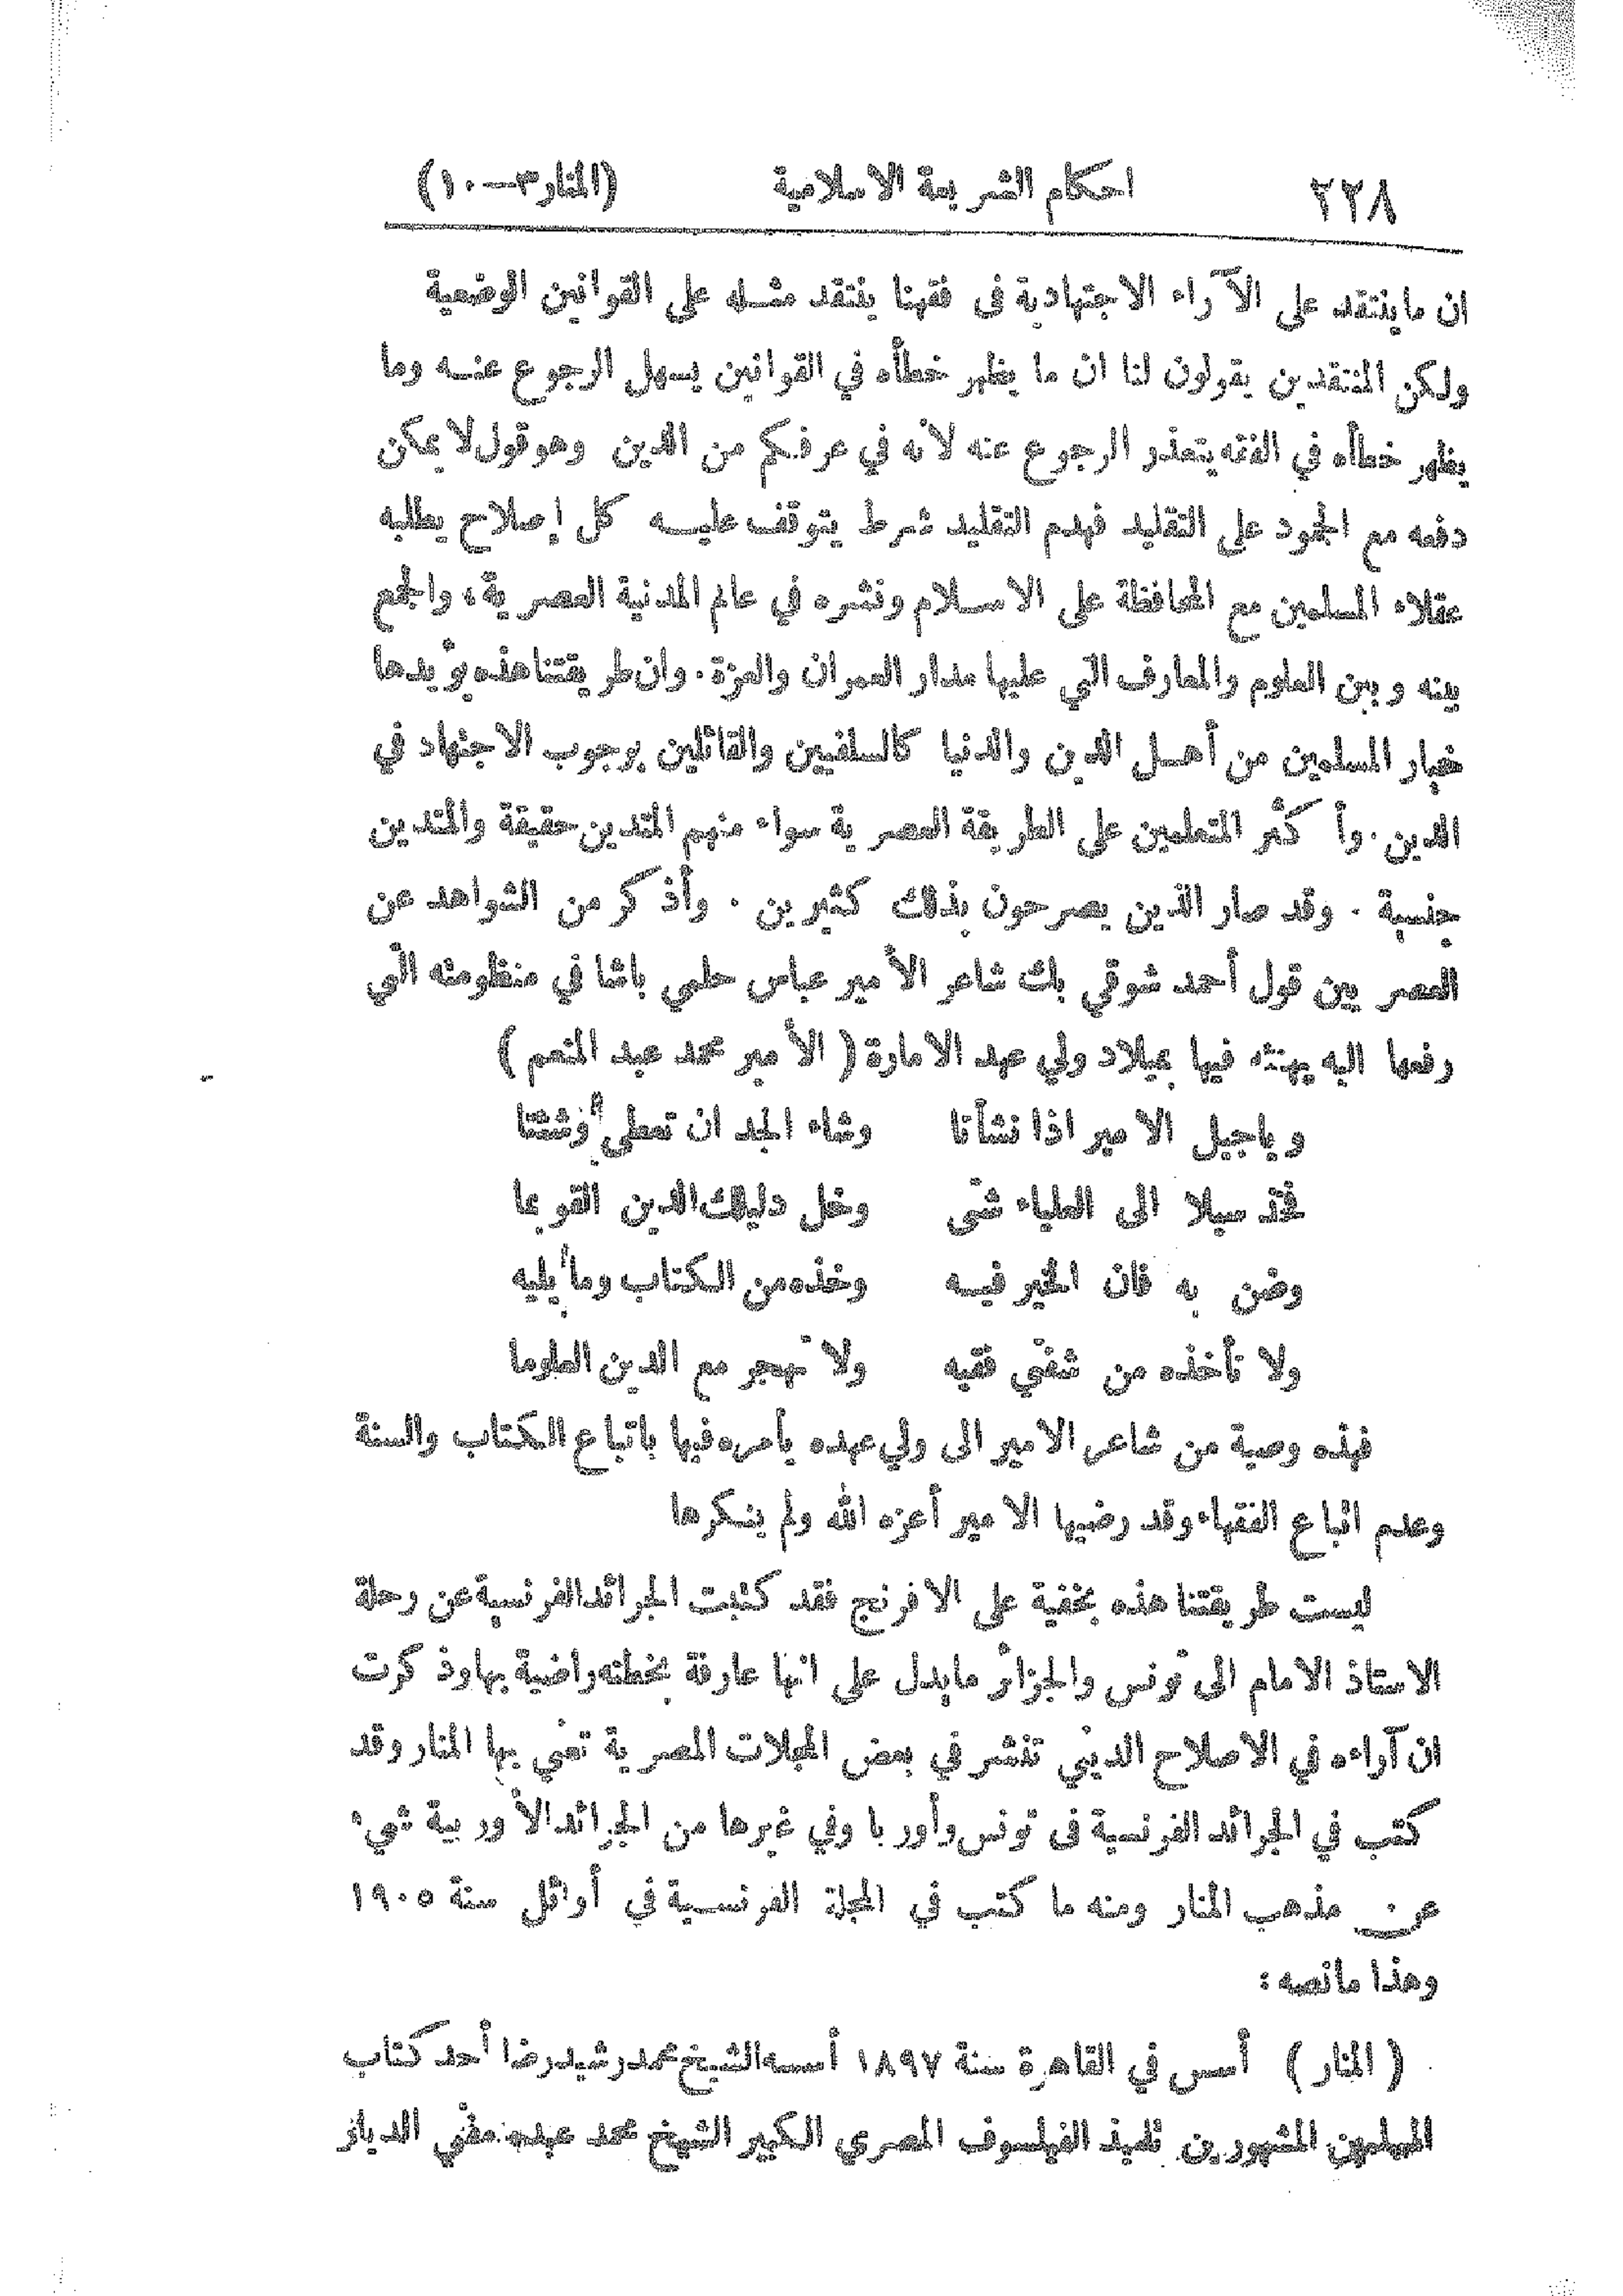 ٢٢٨ احكام الشريعة الاسلامية (المنار٣—١٠)
ان ماينتقد على الآراء الاجتهادية فى فقهنا ينتقد مثله على القوانين الوضعية
ولكن المنتقدين يقولون لنا ان ما يظهر خطأه في القوانين يسهل الرجوع عنه وما
يظهر خطأه في الفقه يتعذر الرجوع عنه لانه في عرفكم من الدين وهو قول لا يمكن
دفعه مع الجمود على التقليد فهدم التقليد شرط يتوقف عليه كل إصلاح يطلبه
عقلاء المسلمين مع المحافظة على الاسلام ونشره في عالم المدنية العصرية، والجمع
بينه وبين العلوم والمعارف التي عليها مدار العمران والعزة. وان طريقتنا هذه يؤيدها
خيار المسلمين من أهل الدين والدنيا كالسلفيين والقائلين بوجوب الاجتهاد في
الدين. وأكثر المتعلمين على الطريقة العصرية سواء منهم المتدين حقيقة والمتدين
جنسية. وقد صار الذين يصرحون بذلك كثيرين. وأذكر من الشواهد عن
العصريين قول أحمد شوقي بك شاعر الأمير عباس حلمي باشا في منظومته التي
رفعها اليه يهنئه فيها بميلاد ولي عهد الامارة (الأمير محمد عبد المنعم)
وياجيل الامير اذا نشأنا وشاء الجد ان تعطى وشئتا
فخذ سبلا الى العلياء شتى وخل دليلك الدين القويما
وضن به فان الخير فيه وخذه من الكتاب وما يليه
ولا تأخذه من شفتي فقيه ولا تهجر مع الدين العلوما
فهذه وصية من شاعر الامير الى ولي عهده يأمره فيها باتباع الكتاب والسنة
وعدم اتباع الفقهاء وقد رضيها الامير أعزه الله ولم ينكرها
ليست طريقتنا هذه بخفية على الافرنج فقد كتبت الجرائد الفرنسية عن رحلة
الاستاذ الامام الى تونس والجزائر مايدل على انها عارفة بخطته راضية بها وذكرت
ان آراءه في الاصلاح الديني تنشر في بعض المجلات المصرية تعني بها المنار وقد
كتب في الجرائد الفرنسية فى تونس وأوربا وفي غيرها من الجرائد الأوربية شيء
عن مذهب المنار ومنه ما كتب في المجلة الفرنسية في أوائل سنة ١٩٠٥
وهذا مانصه:
(المنار) أسس في القاهرة سنة ١٨٩٧ أسسه الشيخ محمد رشيد رضا أحد كتاب
المسلمين المشهورين تلميذ الفيلسوف المصري الكبير الشيخ محمد عبده مفتي الديار